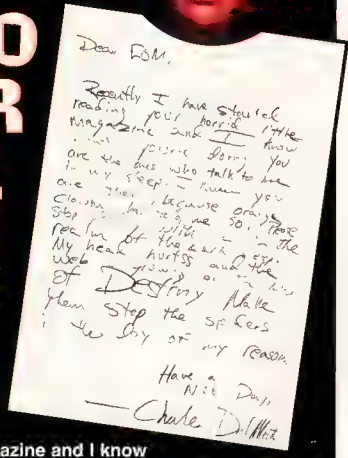 O
R
Dear EGM,
Recently I have started
reading your horrid little
magazine and I know
you're doing. You
are the ones who talk to me
in my sleep. I know you
are because orange
clowns me so. Please
stop with the
realm of the dark
My head hurts and the
web
of Destiny Make
them stop the spiders
the day of my reason.
Have a
Nice Day,
— Charles
azine and I know